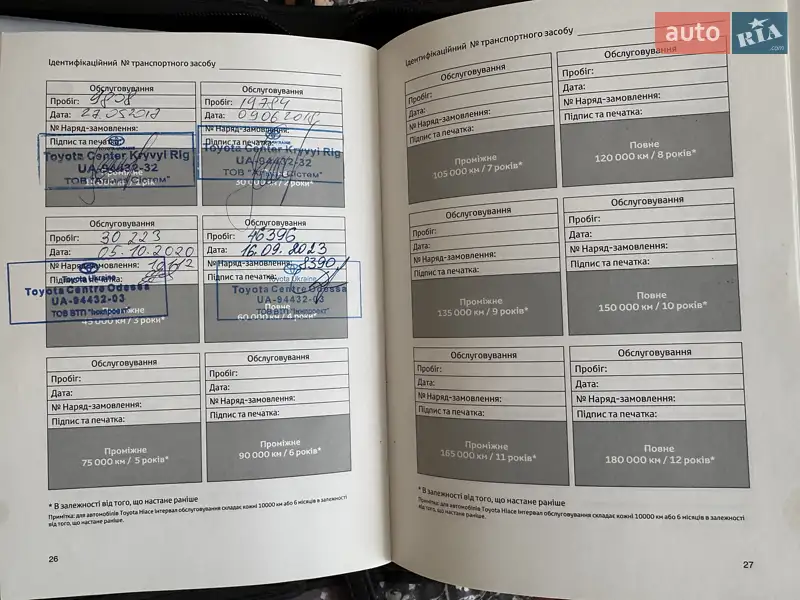 auto RIA .com
Ідентифікаційний № транспортного засобу
Обслуговування
Пробіг: 9808
Дата: 27.05.2018
№ Наряд-замовлення:
Підпис та печатка:
Toyota Center Kryvyi Rig
UA-94432-32
Обслуговування
Пробіг: 19784
Дата: 09.06.2018
№ Наряд-замовлення:
Підпис та печатка:
Toyota Center Kryvyi Rig
UA-94432-32
30 000 км / 2 роки*
Обслуговування
Пробіг: 30 223
Дата: 05.10.2020
№ Наряд-замовлення:
Підпис та печатка:
Toyota Ukraine
Toyota Centre Odessa
UA-94432-03
ТОВ ВТП "Інкпроект"
45 000 км / 3 роки*
Обслуговування
Пробіг: 46396
Дата: 16.09.2023
№ Наряд-замовлення: 8390
Підпис та печатка:
Toyota Ukraine
Toyota Centre Odessa
UA-94432-03
ТОВ ВТП "Інкпроект"
Повне
60 000 км / 4 роки*
Обслуговування
Пробіг:
Дата:
№ Наряд-замовлення:
Підпис та печатка:
Проміжне
75 000 км / 5 років*
Обслуговування
Пробіг:
Дата:
№ Наряд-замовлення:
Підпис та печатка:
Проміжне
90 000 км / 6 років*
* В залежності від того, що настане раніше
Примітка: для автомобілів Toyota Hiace інтервал обслуговування складає кожні 10000 км або 6 місяців в залежності
від того, що настане раніше.
26
Ідентифікаційний № транспортного засобу
Обслуговування
Пробіг:
Дата:
№ Наряд-замовлення:
Підпис та печатка:
Проміжне
105 000 км / 7 років*
Обслуговування
Пробіг:
Дата:
№ Наряд-замовлення:
Підпис та печатка:
Повне
120 000 км / 8 років*
Обслуговування
Пробіг:
Дата:
№ Наряд-замовлення:
Підпис та печатка:
Проміжне
135 000 км / 9 років*
Обслуговування
Пробіг:
Дата:
№ Наряд-замовлення:
Підпис та печатка:
Повне
150 000 км / 10 років*
Обслуговування
Пробіг:
Дата:
№ Наряд-замовлення:
Підпис та печатка:
Проміжне
165 000 км / 11 років*
Обслуговування
Пробіг:
Дата:
№ Наряд-замовлення:
Підпис та печатка:
Повне
180 000 км / 12 років*
* В залежності від того, що настане раніше
Примітка: для автомобілів Toyota Hiace інтервал обслуговування складає кожні 10000 км або 6 місяців в залежності
від того, що настане раніше.
27